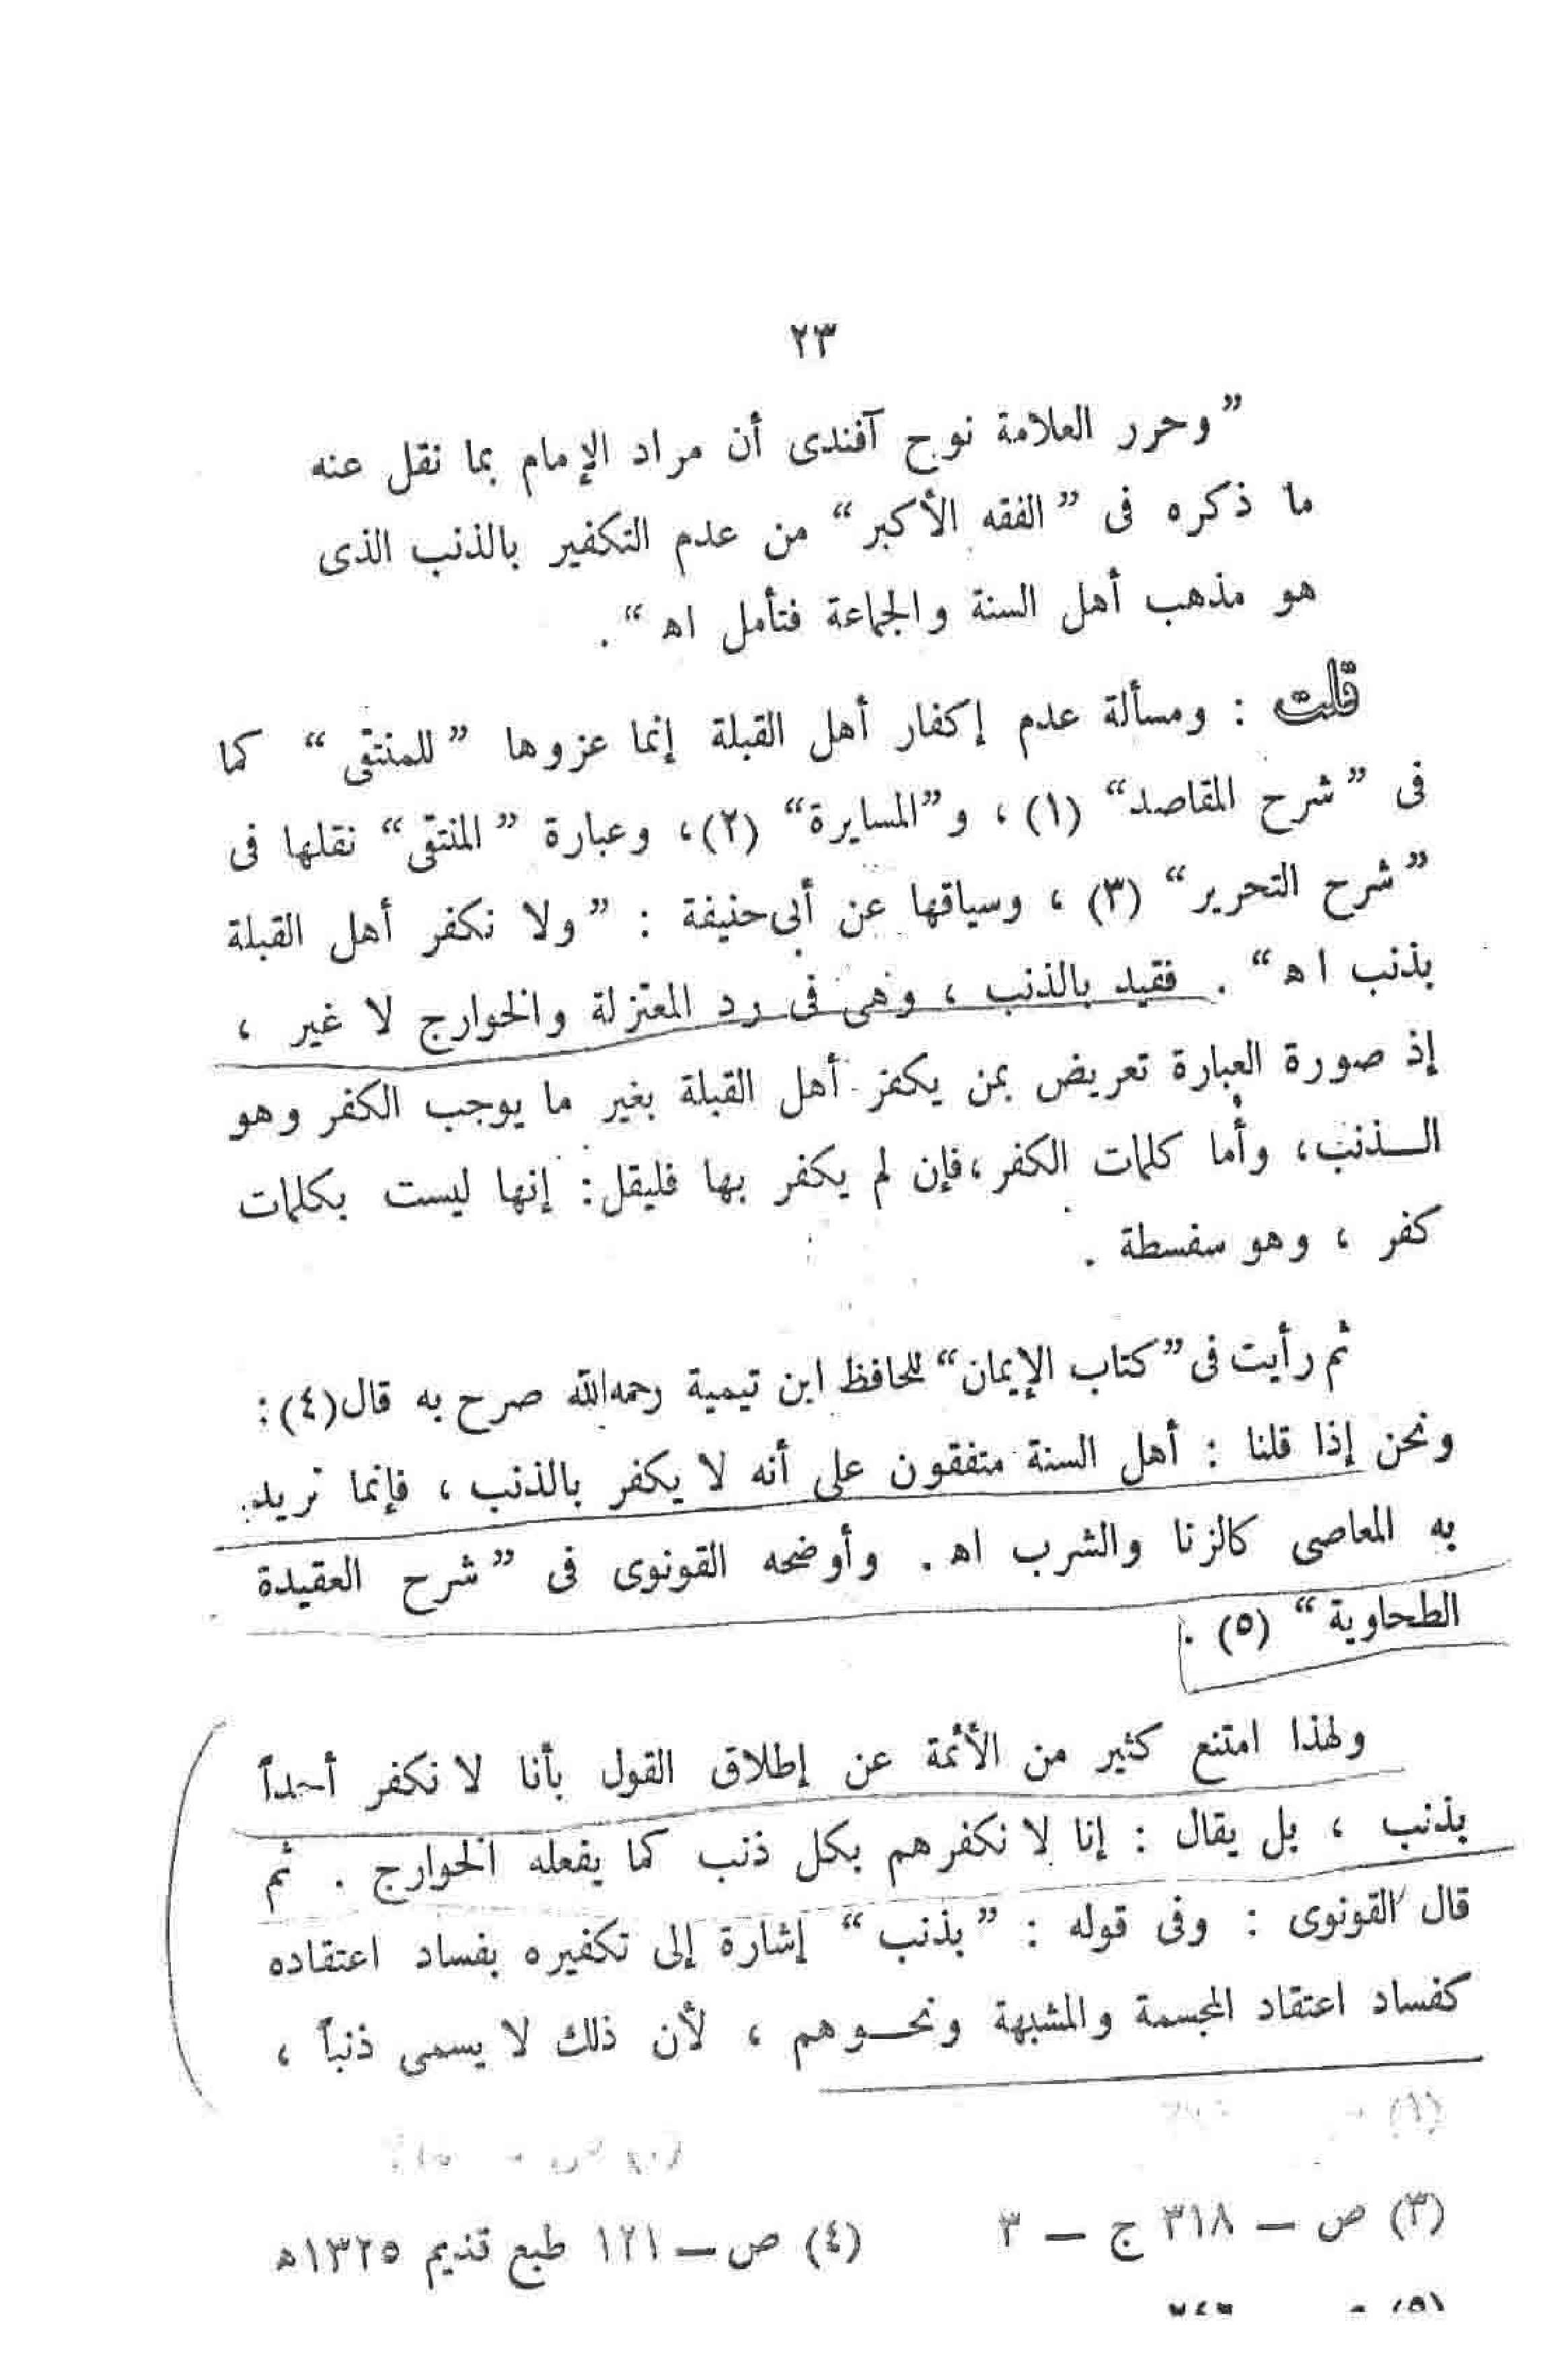 ٢٣
”وحرر العلامة نوح آفندى أن مراد الإمام بما نقل عنه
ما ذكره فى ”الفقه الأكبر“ من عدم التكفير بالذنب الذى
هو مذهب أهل السنة والجماعة فتأمل اه“ .
قلت : ومسألة عدم إكفار أهل القبلة إنما عزوها ”للمنتقى“ كما
فى ”شرح المقاصد“ (١) ، و”المسايرة“ (٢)، وعبارة ”المنتقى“ نقلها فى
”شرح التحرير“ (٣) ، وسياقها عن أبى‌حنيفة : ”ولا نكفر أهل القبلة
بذنب اه“ . فقيد بالذنب ، وهى فى رد المعتزلة والخوارج لا غير ،
إذ صورة العبارة تعريض بمن يكفر أهل القبلة بغير ما يوجب الكفر وهو
الــذنب، وأما كلمات الكفر ،فإن لم يكفر بها فليقل: إنها ليست بكلمات
كفر ، وهو سفسطة .
ثم رأيت فى ”كتاب الإيمان“ للحافظ ابن تيمية رحمه‌الله صرح به قال(٤):
ونحن إذا قلنا : أهل السنة متفقون على أنه لا يكفر بالذنب ، فإنما نريد
به المعاصى كالزنا والشرب اه . وأوضحه القونوى فى ”شرح العقيدة
الطحاوية“ (٥) .
ولهذا امتنع كثير من الأئمة عن إطلاق القول بأنا لا نكفر أحداً
بذنب ، بل يقال : إنا لا نكفرهم بكل ذنب كما يفعله الخوارج . ثم
قال القونوى : وفى قوله : ”بذنب“ إشارة إلى تكفيره بفساد اعتقاده
كفساد اعتقاد المجسمة والمشبهة ونحــوهم ، لأن ذلك لا يسمى ذنباً ،
(١)
(٣) ص — ٣١٨ ج — ٣ (٤) ص — ١٢١ طبع قديم ١٣٢٥ه